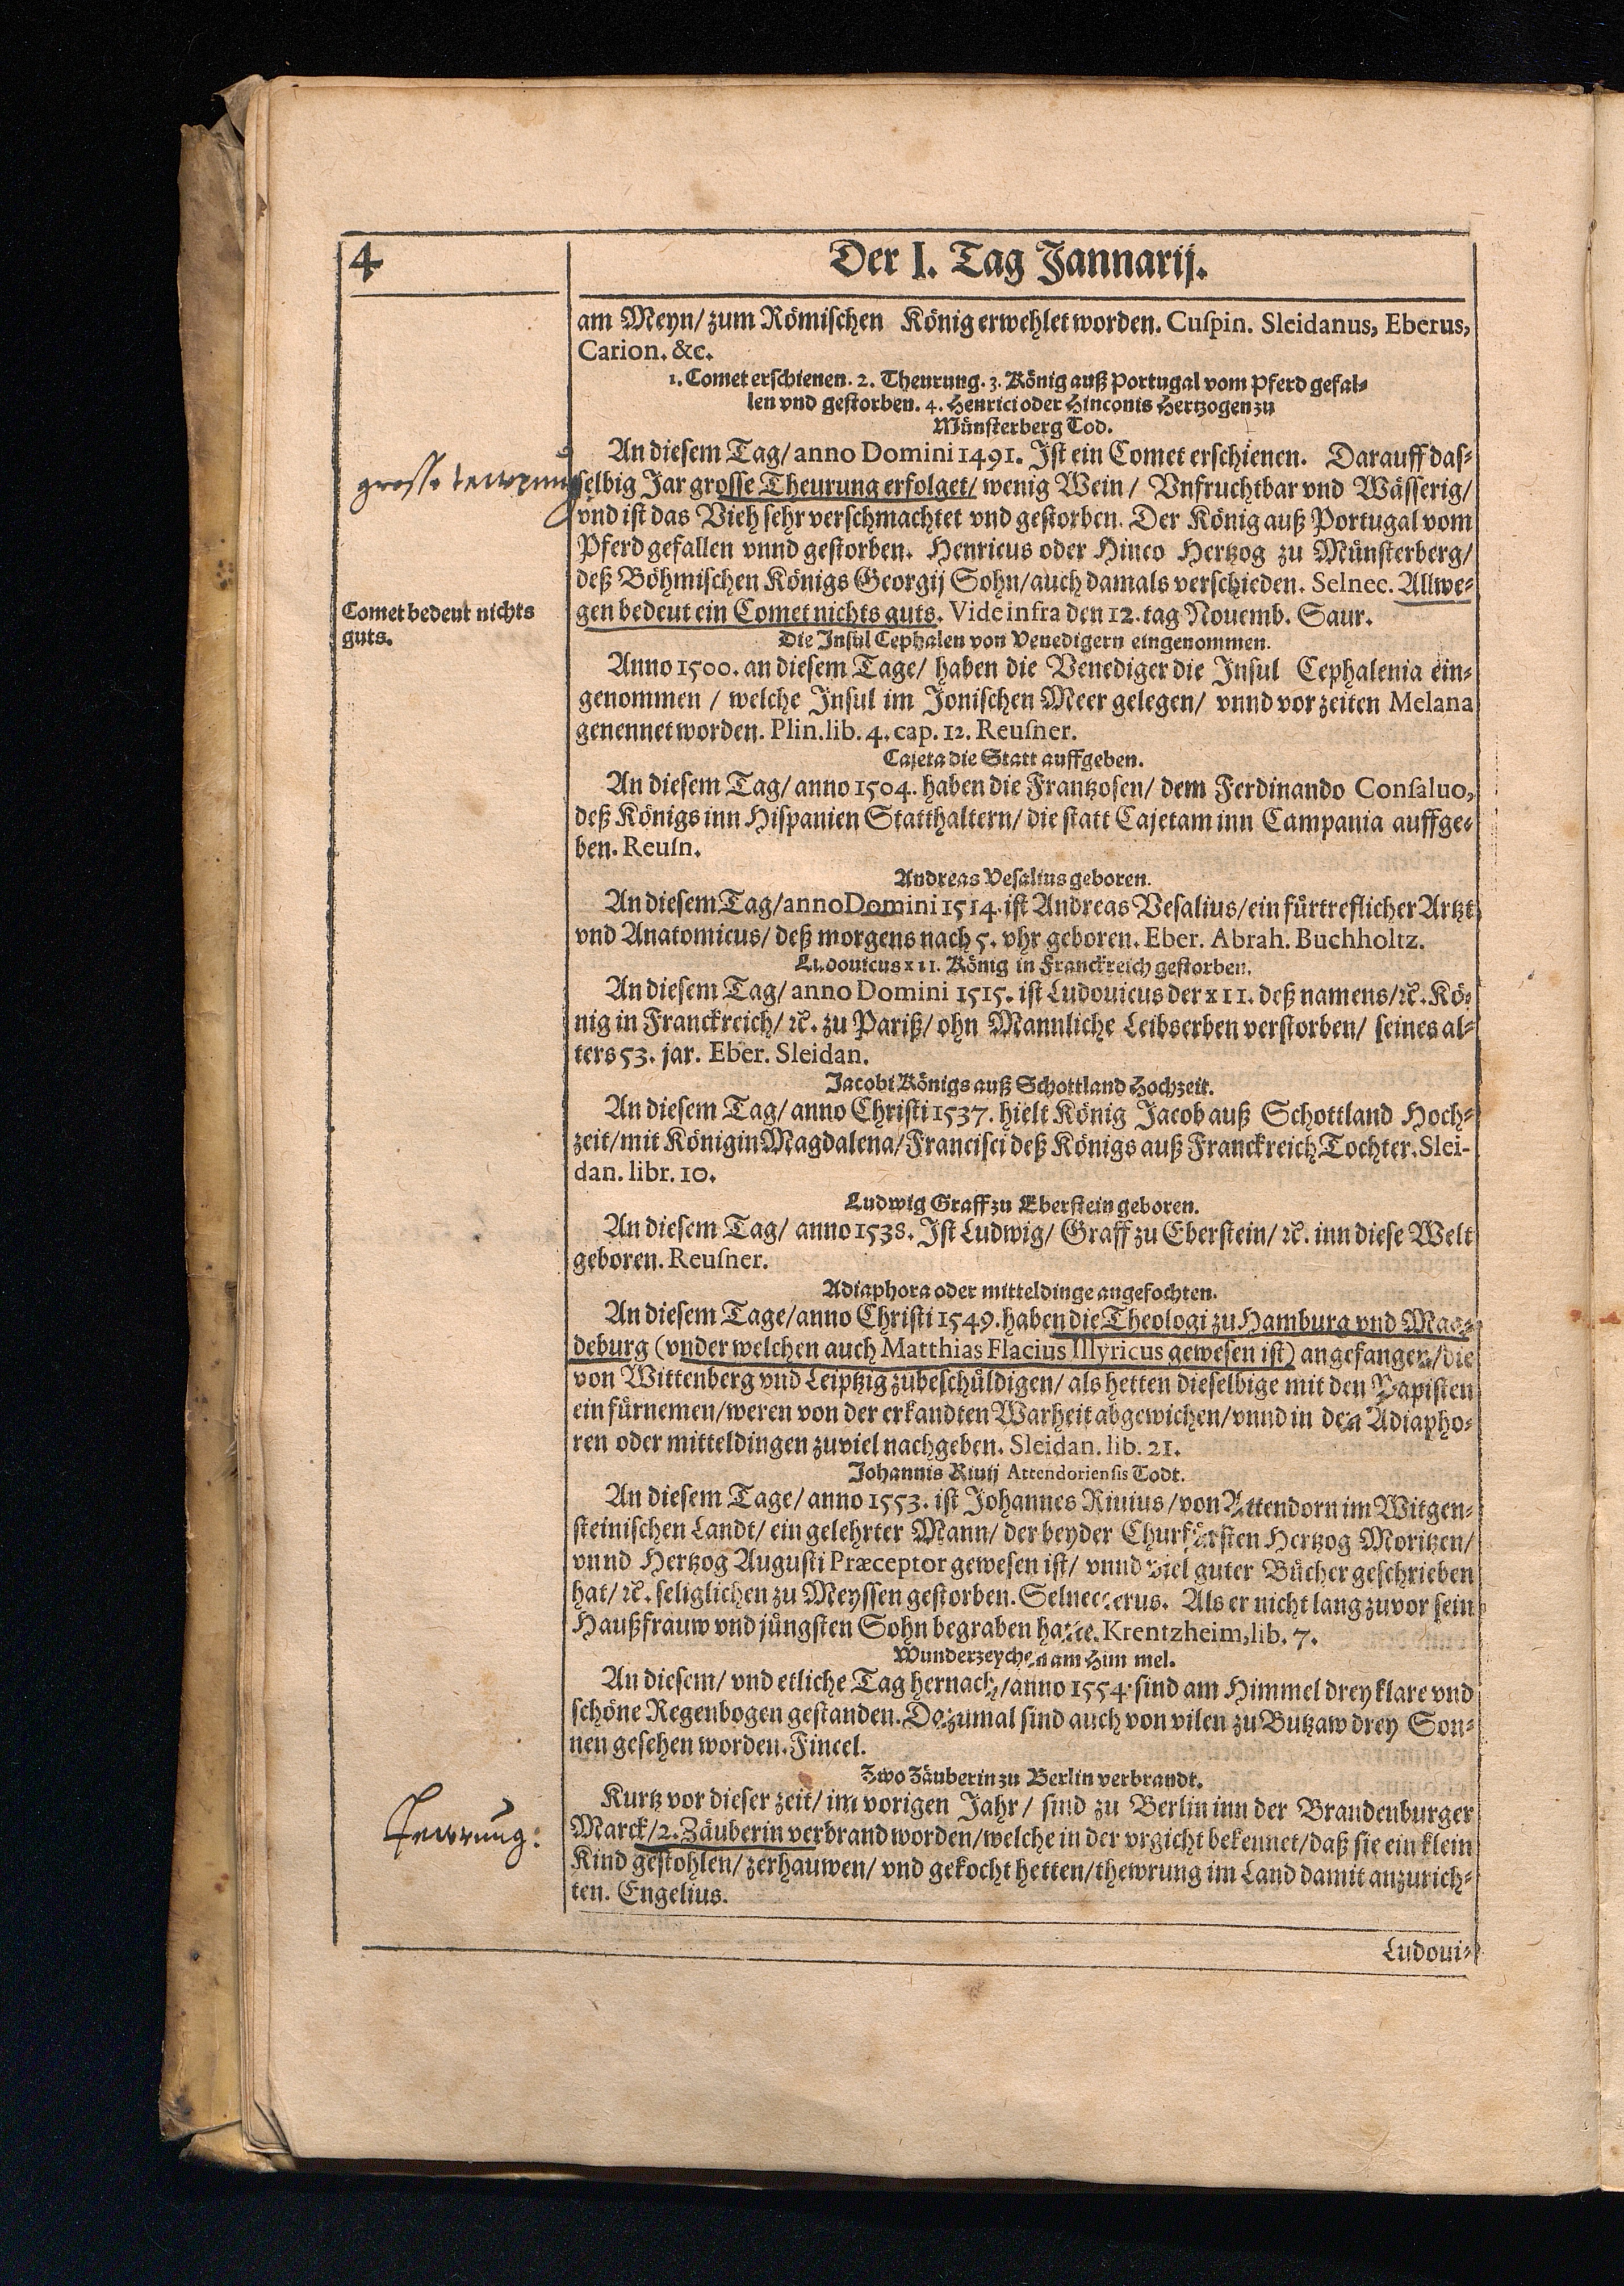 4
Der I. Tag Jannarij.
am Meyn/ zum Römischen König erwehlet worden. Cuſpin. Sleidanus, Eberus,
Carion. &c.
1. Comet erschienen. 2. Theurung. 3. König auß Portugal vom Pferd gefal-
len vnd gestorben. 4. Henrici oder Hinconis Hertzogen zu
Münsterberg Tod.
An diesem Tag/ anno Domini 1491. Ist ein Comet erschienen. Darauff das-
grosse tewrung
selbig Jar grosse Theurung erfolget/ wenig Wein/ Vnfruchtbar vnd Wässerig/
vnd ist das Vieh sehr verschmachtet vnd gestorben. Der König auß Portugal vom
Pferd gefallen vnnd gestorben. Henricus oder Hinco Hertzog zu Münsterberg/
deß Böhmischen Königs Georgij Sohn/ auch damals verschieden. Selnec. Allwe-
Comet bedeut nichts
guts.
gen bedeut ein Comet nichts guts. Vide infra den 12. tag Nouemb. Saur.
Die Insul Cephalen von Venedigern eingenommen.
Anno 1500. an diesem Tage/ haben die Venediger die Insul Cephalenia ein-
genommen/ welche Insul im Jonischen Meer gelegen/ vnnd vor zeiten Melana
genennet worden. Plin. lib. 4. cap. 12. Reuſner.
Cajeta die Statt auffgeben.
An diesem Tag/ anno 1504. haben die Frantzosen/ dem Ferdinando Conſaluo,
deß Königs inn Hispanien Statthaltern/ die statt Cajetam inn Campania auffge-
ben. Reuſn.
Andreas Vesalius geboren.
An diesem Tag/ anno Domini 1514. ist Andreas Vesalius/ ein fürtreflicher Artzt
vnd Anatomicus/ deß morgens nach 5. vhr geboren. Eber. Abrah. Buchholtz.
Ludouicus XII. König in Franckreich gestorben.
An diesem Tag/ anno Domini 1515. ist Ludouicus der XII. deß namens/ ꝛc. Kö-
nig in Franckreich/ ꝛc. zu Pariß/ ohn Mannliche Leibserben verstorben/ seines al-
ters 53. jar. Eber. Sleidan.
Jacobi Königs auß Schottland Hochzeit.
An diesem Tag/ anno Christi 1537. hielt König Jacob auß Schottland Hoch-
zeit/ mit Königin Magdalena/ Francisci deß Königs auß Franckreich Tochter. Slei-
dan. libr. 10.
Ludwig Graff zu Eberstein geboren.
An diesem Tag/ anno 1538. Ist Ludwig/ Graff zu Eberstein/ ꝛc. inn diese Welt
geboren. Reuſner.
Adiaphora oder mitteldinge angefochten.
An diesem Tage/ anno Christi 1549. haben die Theologi zu Hamburg vnd Mag-
deburg (vnder welchen auch Matthias Flacius Illyricus gewesen ist) angefangen/ die
von Wittenberg vnd Leiptzig zubeschüldigen/ als hetten dieselbige mit den Papisten
ein fürnemen/ weren von der erkandten Warheit abgewichen/ vnnd in den Adiapho-
ren oder mitteldingen zuviel nachgeben. Sleidan. lib. 21.
Johannis Riuij Attendorienſis Todt.
An diesem Tage/ anno 1553. ist Johannes Riuius/ von Attendorn im Witgen-
steinischen Landt/ ein gelehrter Mann/ der beyder Churfürsten Hertzog Moritzen/
vnnd Hertzog Augusti Præceptor gewesen ist/ vnnd viel guter Bücher geschrieben
hat/ ꝛc. seliglichen zu Meyssen gestorben. Selneccerus. Als er nicht lang zuvor sein
Haußfrauw vnd jüngsten Sohn begraben hatte. Krentzheim, lib. 7.
Wunderzeychen am Himmel.
An diesem/ vnd etliche Tag hernach/ anno 1554. sind am Himmel drey klare vnd
schöne Regenbogen gestanden. Dozumal sind auch von vilen zu Butzaw drey Son-
nen gesehen worden. Fincel.
Zwo Zäuberin zu Berlin verbrandt.
Kurtz vor dieser zeit/ im vorigen Jahr/ sind zu Berlin inn der Brandenburger
Tewrung:
Marck/ 2. Zäuberin verbrand worden/ welche in der vrgicht bekennet/ daß sie ein klein
Kind gestohlen/ zerhauwen/ vnd gekocht hetten/ thewrung im Land damit anzurich-
ten. Engelius.
Ludoui-